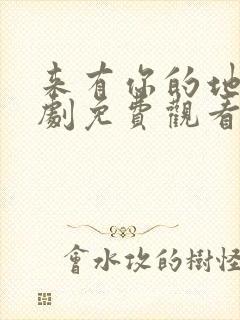 来有你的地
劇免費觀看
會水攻的樹怪